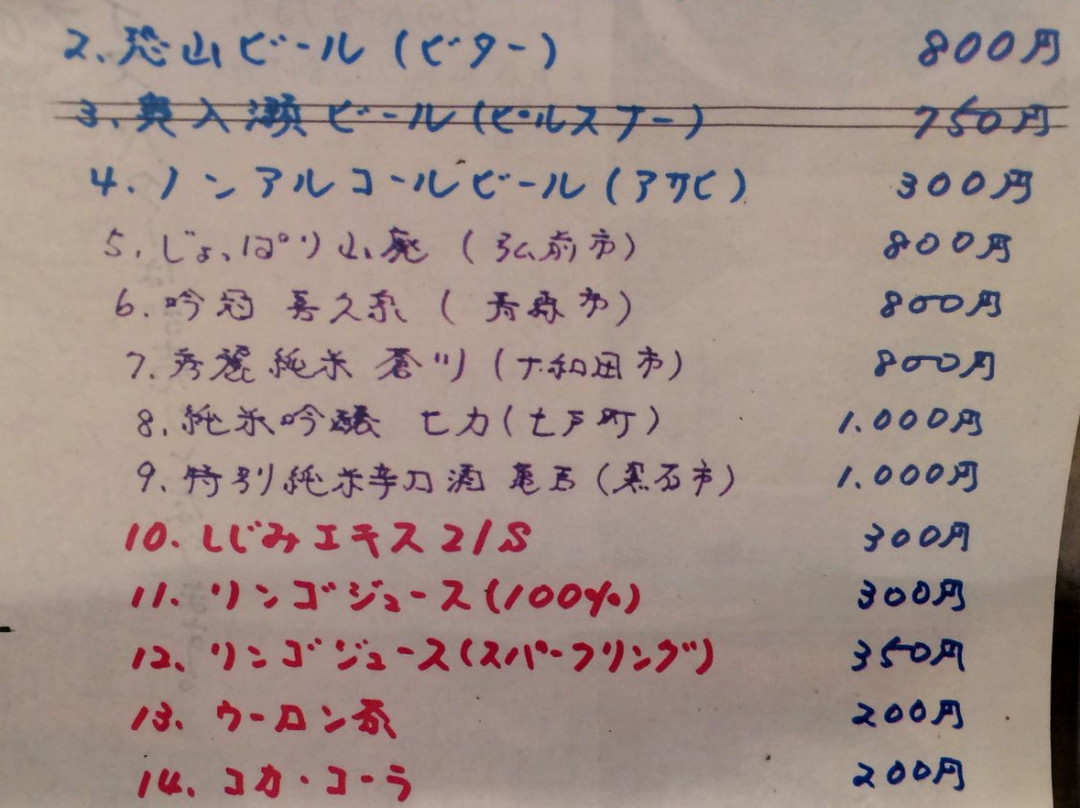 2. 恐山ビール(ビター) 800円
3. 奥入瀬ビール(ピルスナー) 750円
4. ノンアルコールビール(アサヒ) 300円
5. じょっぱり山廃 (弘前市) 800円
6. 吟冠 喜久泉 (青森市) 800円
7. 秀麗純米 蒼川 (十和田市) 800円
8. 純米吟醸 七力(七戸町) 1.000円
9. 特別純米辛口酒 亀吉(黒石市) 1.000円
10. しじみエキス21S 300円
11. リンゴジュース(100%) 300円
12. リンゴジュース(スパークリング) 350円
13. ウーロン茶 200円
14. コカ・コーラ 200円